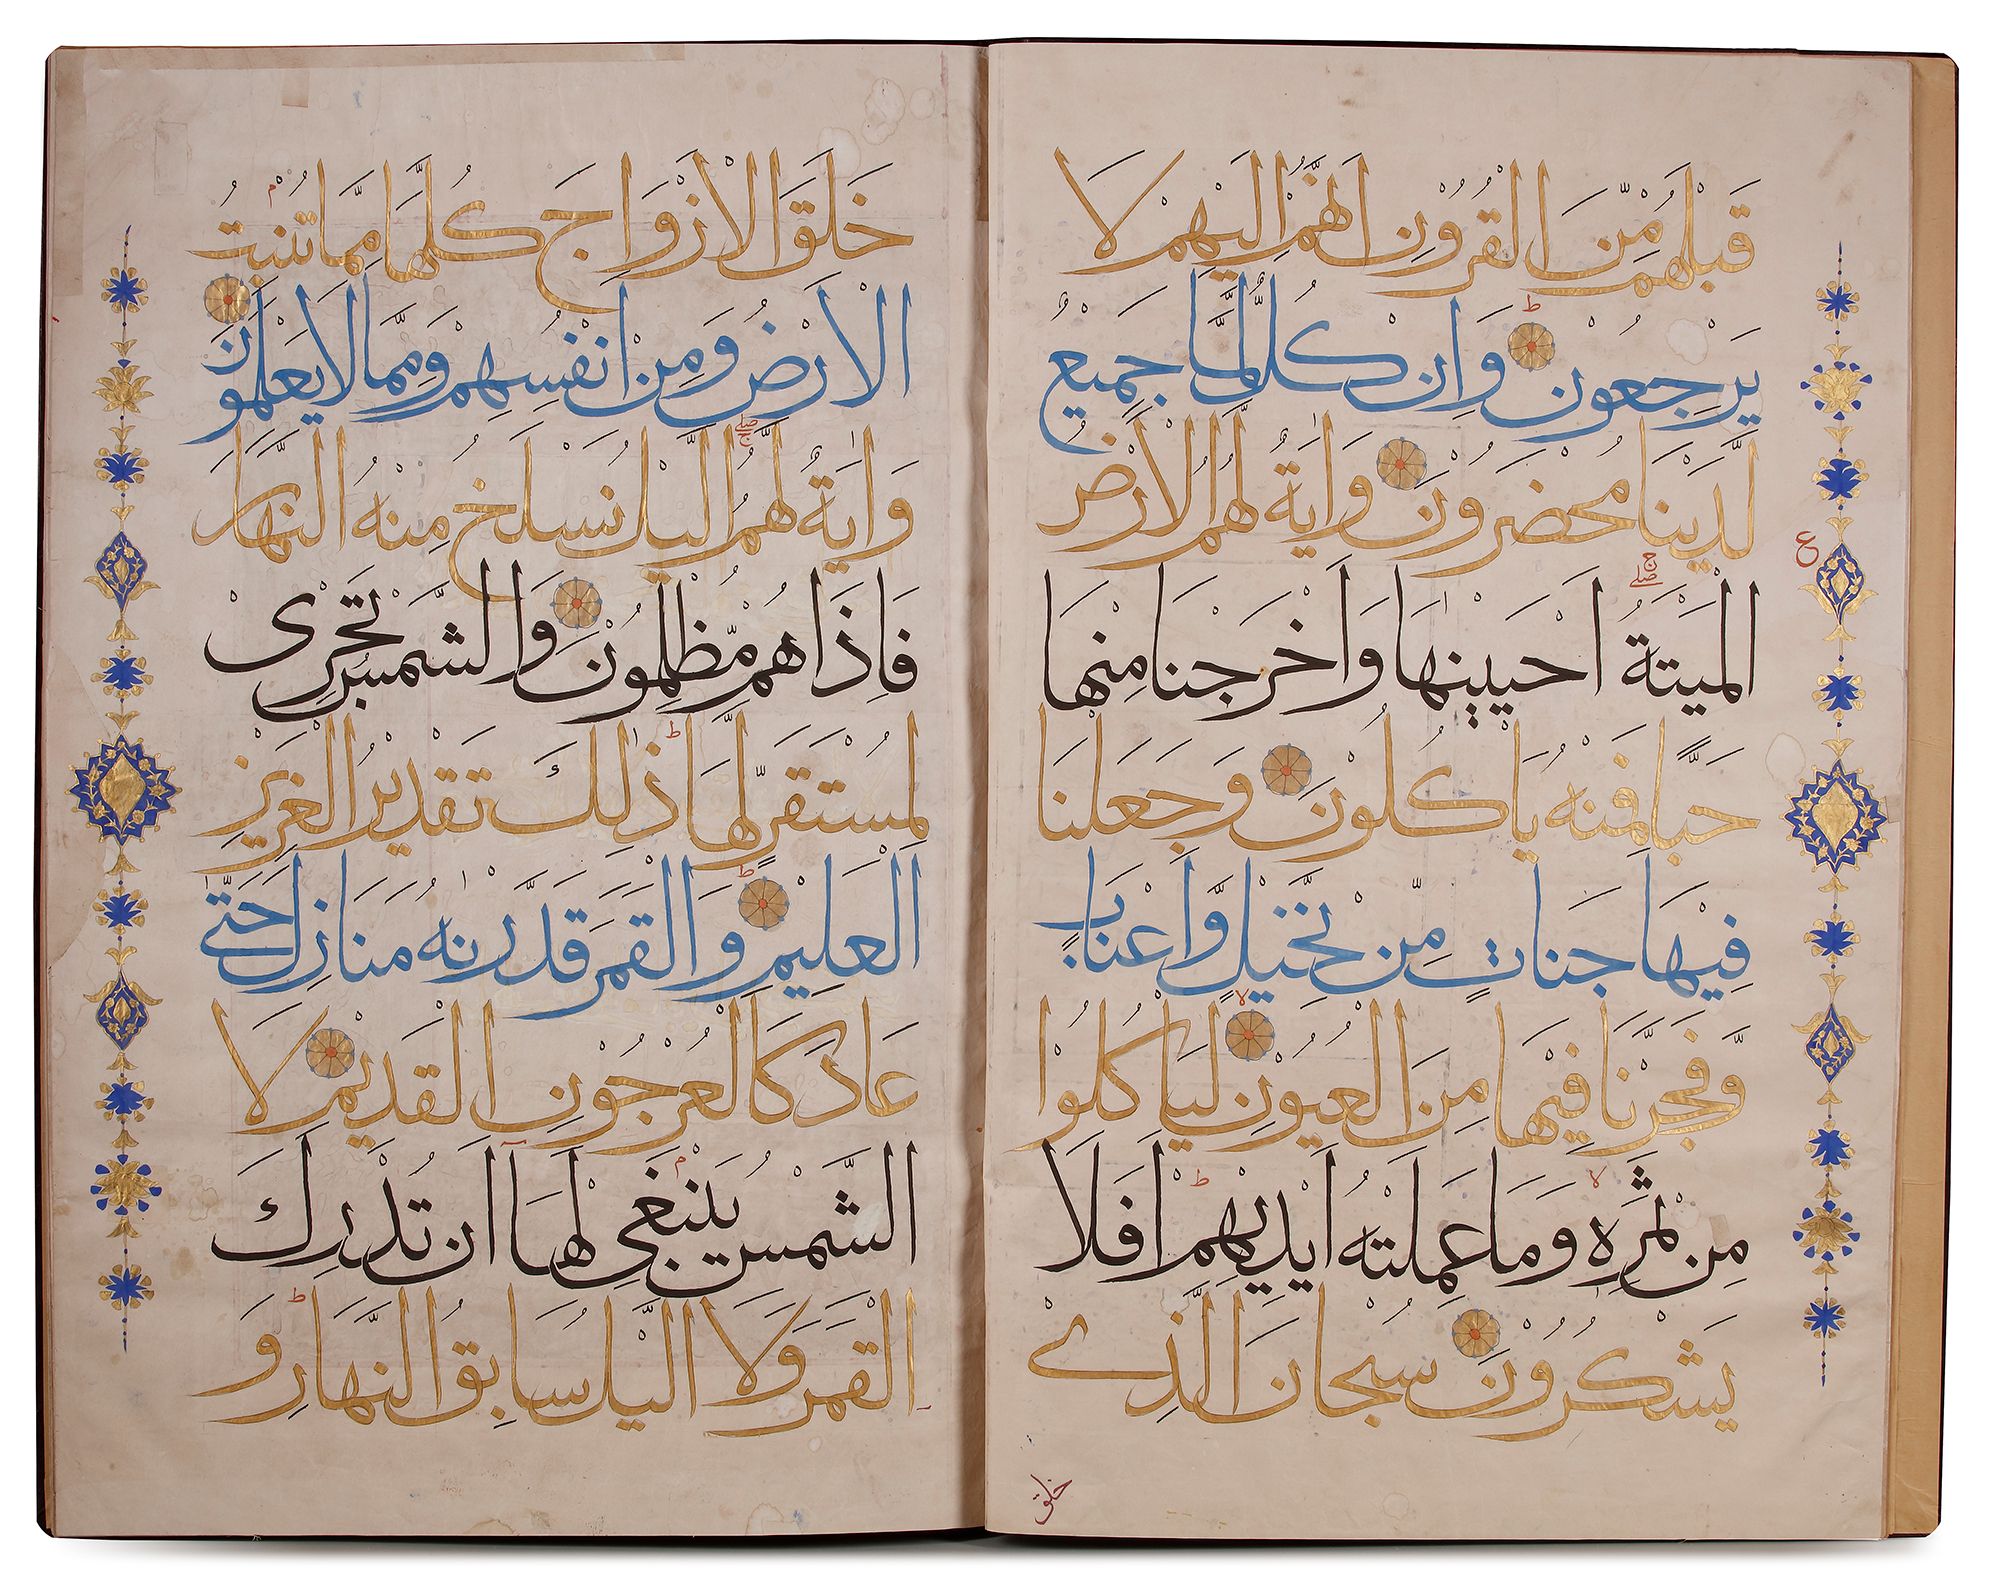 قَبْلَهُمْ مِّنَ الْقُرُوْنِ اَنَّهُمْ اِلَيْهِمْ لَا
يَرْجِعُوْنَ وَاِنْ كُلٌّ لَّمَّا جَمِيْعٌ
لَّدَيْنَا مُحْضَرُوْنَ وَاٰيَةٌ لَّهُمُ الْاَرْضُ
الْمَيْتَةُ اَحْيَيْنٰهَا وَاَخْرَجْنَا مِنْهَا
حَبًّا فَمِنْهُ يَاْكُلُوْنَ وَجَعَلْنَا
فِيْهَا جَنَّاتٍ مِّنْ نَّخِيْلٍ وَّاَعْنَابٍ
وَّفَجَّرْنَا فِيْهَا مِنَ الْعُيُوْنِ لِيَاْكُلُوْا
مِنْ ثَمَرِهٖ وَمَا عَمِلَتْهُ اَيْدِيْهِمْ اَفَلَا
يَشْكُرُوْنَ سُبْحَانَ الَّذِيْ
خلق
خَلَقَ الْاَزْوَاجَ كُلَّهَا مِمَّا تُنْبِتُ
الْاَرْضُ وَمِنْ اَنْفُسِهِمْ وَمِمَّا لَا يَعْلَمُوْنَ
وَاٰيَةٌ لَّهُمُ الَّيْلُ نَسْلَخُ مِنْهُ النَّهَارَ
فَاِذَا هُمْ مُّظْلِمُوْنَ وَالشَّمْسُ تَجْرِيْ
لِمُسْتَقَرٍّ لَّهَا ذٰلِكَ تَقْدِيْرُ الْعَزِيْزِ
الْعَلِيْمِ وَالْقَمَرَ قَدَّرْنٰهُ مَنَازِلَ حَتّٰى
عَادَ كَالْعُرْجُوْنِ الْقَدِيْمِ لَا
الشَّمْسُ يَنْبَغِيْ لَهَا اَنْ تُدْرِكَ
الْقَمَرَ وَلَا الَّيْلُ سَابِقُ النَّهَارِ وَ